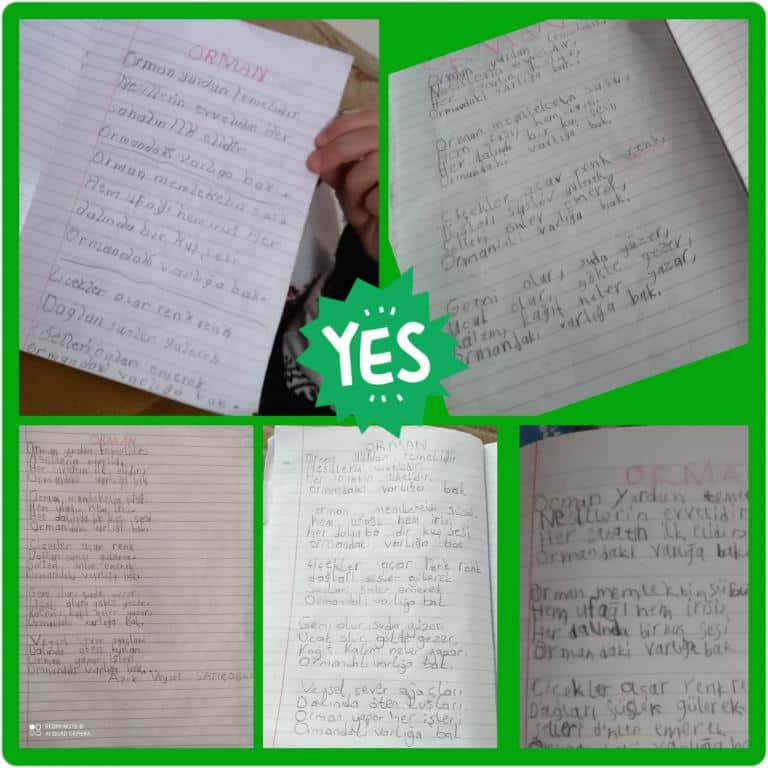 ORMAN
Orman yurdun temelidir
Nesillerin evvelidir Her
sanatın ilk elidir
Ormandaki varlığa bak.
Orman memleketin süsü
Hem ufağı hem irisi Her
dalında bir kuş sesi
Ormandaki varlığa bak.
Çiçekler açar renk renk
Dağları süsler gülerek
Selleri önler emerek
ormandaki varlığa bak.
Orman yurdun temelidir,
Nesillerin
Her
Ormandaki varlığa bak.
Orman memleketin süsü,
Hem ufağı, hem irisi,
Her dalında bir kuş sesi,
Ormandaki varlığa bak.
Çiçekler açar renk renk,
Dağları süsler gülerek,
Selleri önler emerek,
Ormandaki varlığa bak.
Gemi olur, suda yüzer,
Uçak olur, gökte gezer,
Kalem, kağıt neler yazar,
Ormandaki varlığa bak.
YES
ORMAN
Orman yurdun temelidir
Nesillerin
Her sanatın ilk elidir
Ormandaki varlığa bak
Orman memleketin süsü
Hem ufağı hem irisi
Her dalında bir kuş sesi
Ormandaki varlığa bak.
Çiçekler açar renk
Dağları süsler gülerek
Selleri önler emerek
Ormandaki varlığa bak
Gemi olur suda yüzer
Uçak olur gökte gezer
Ormandaki varlığa bak.
Veysel sever ağaçları
Dalında öten kuşları
Orman yapar işleri
Ormandaki varlığa bak...
Aşık Veysel SATIROĞLU
REDMI NOTE 8
AI QUAD CAMERA
ORMAN
Orman yurdun temelidir
Nesillerin
Her sanatın
ormandaki varlığa bak
orman memleketin süsü
hem ufağı hem irisi
her dalında bir kuş sesi
ormandaki varlığa bak
Çiçekler açar renk renk
dağları süsler gülerek
önler emerek
Ormandaki varlığa bak
Gemi olur, suda yüzer
Uçak olur, gökte gezer
Kağıt kalem neler yapar
Ormandaki varlığa bak
Veysel, sever ağaçları
Dalında öten kuşları
Orman, yapar her işleri
Ormandaki varlığa bak
ORMA
Orman Yurdun teme
Nesillerin evvelidir
Her sanatın ilk elidir
Ormandaki varlığa bak
Orman memleketin süsü
Hem ufağı hem irisi
Her dalında bir kuş sesi
Ormandaki varlığa bak
Çiçekler açar renk re
Dağları süsler gülerek
Selleri önler emerek
ormandaki varlığa bak